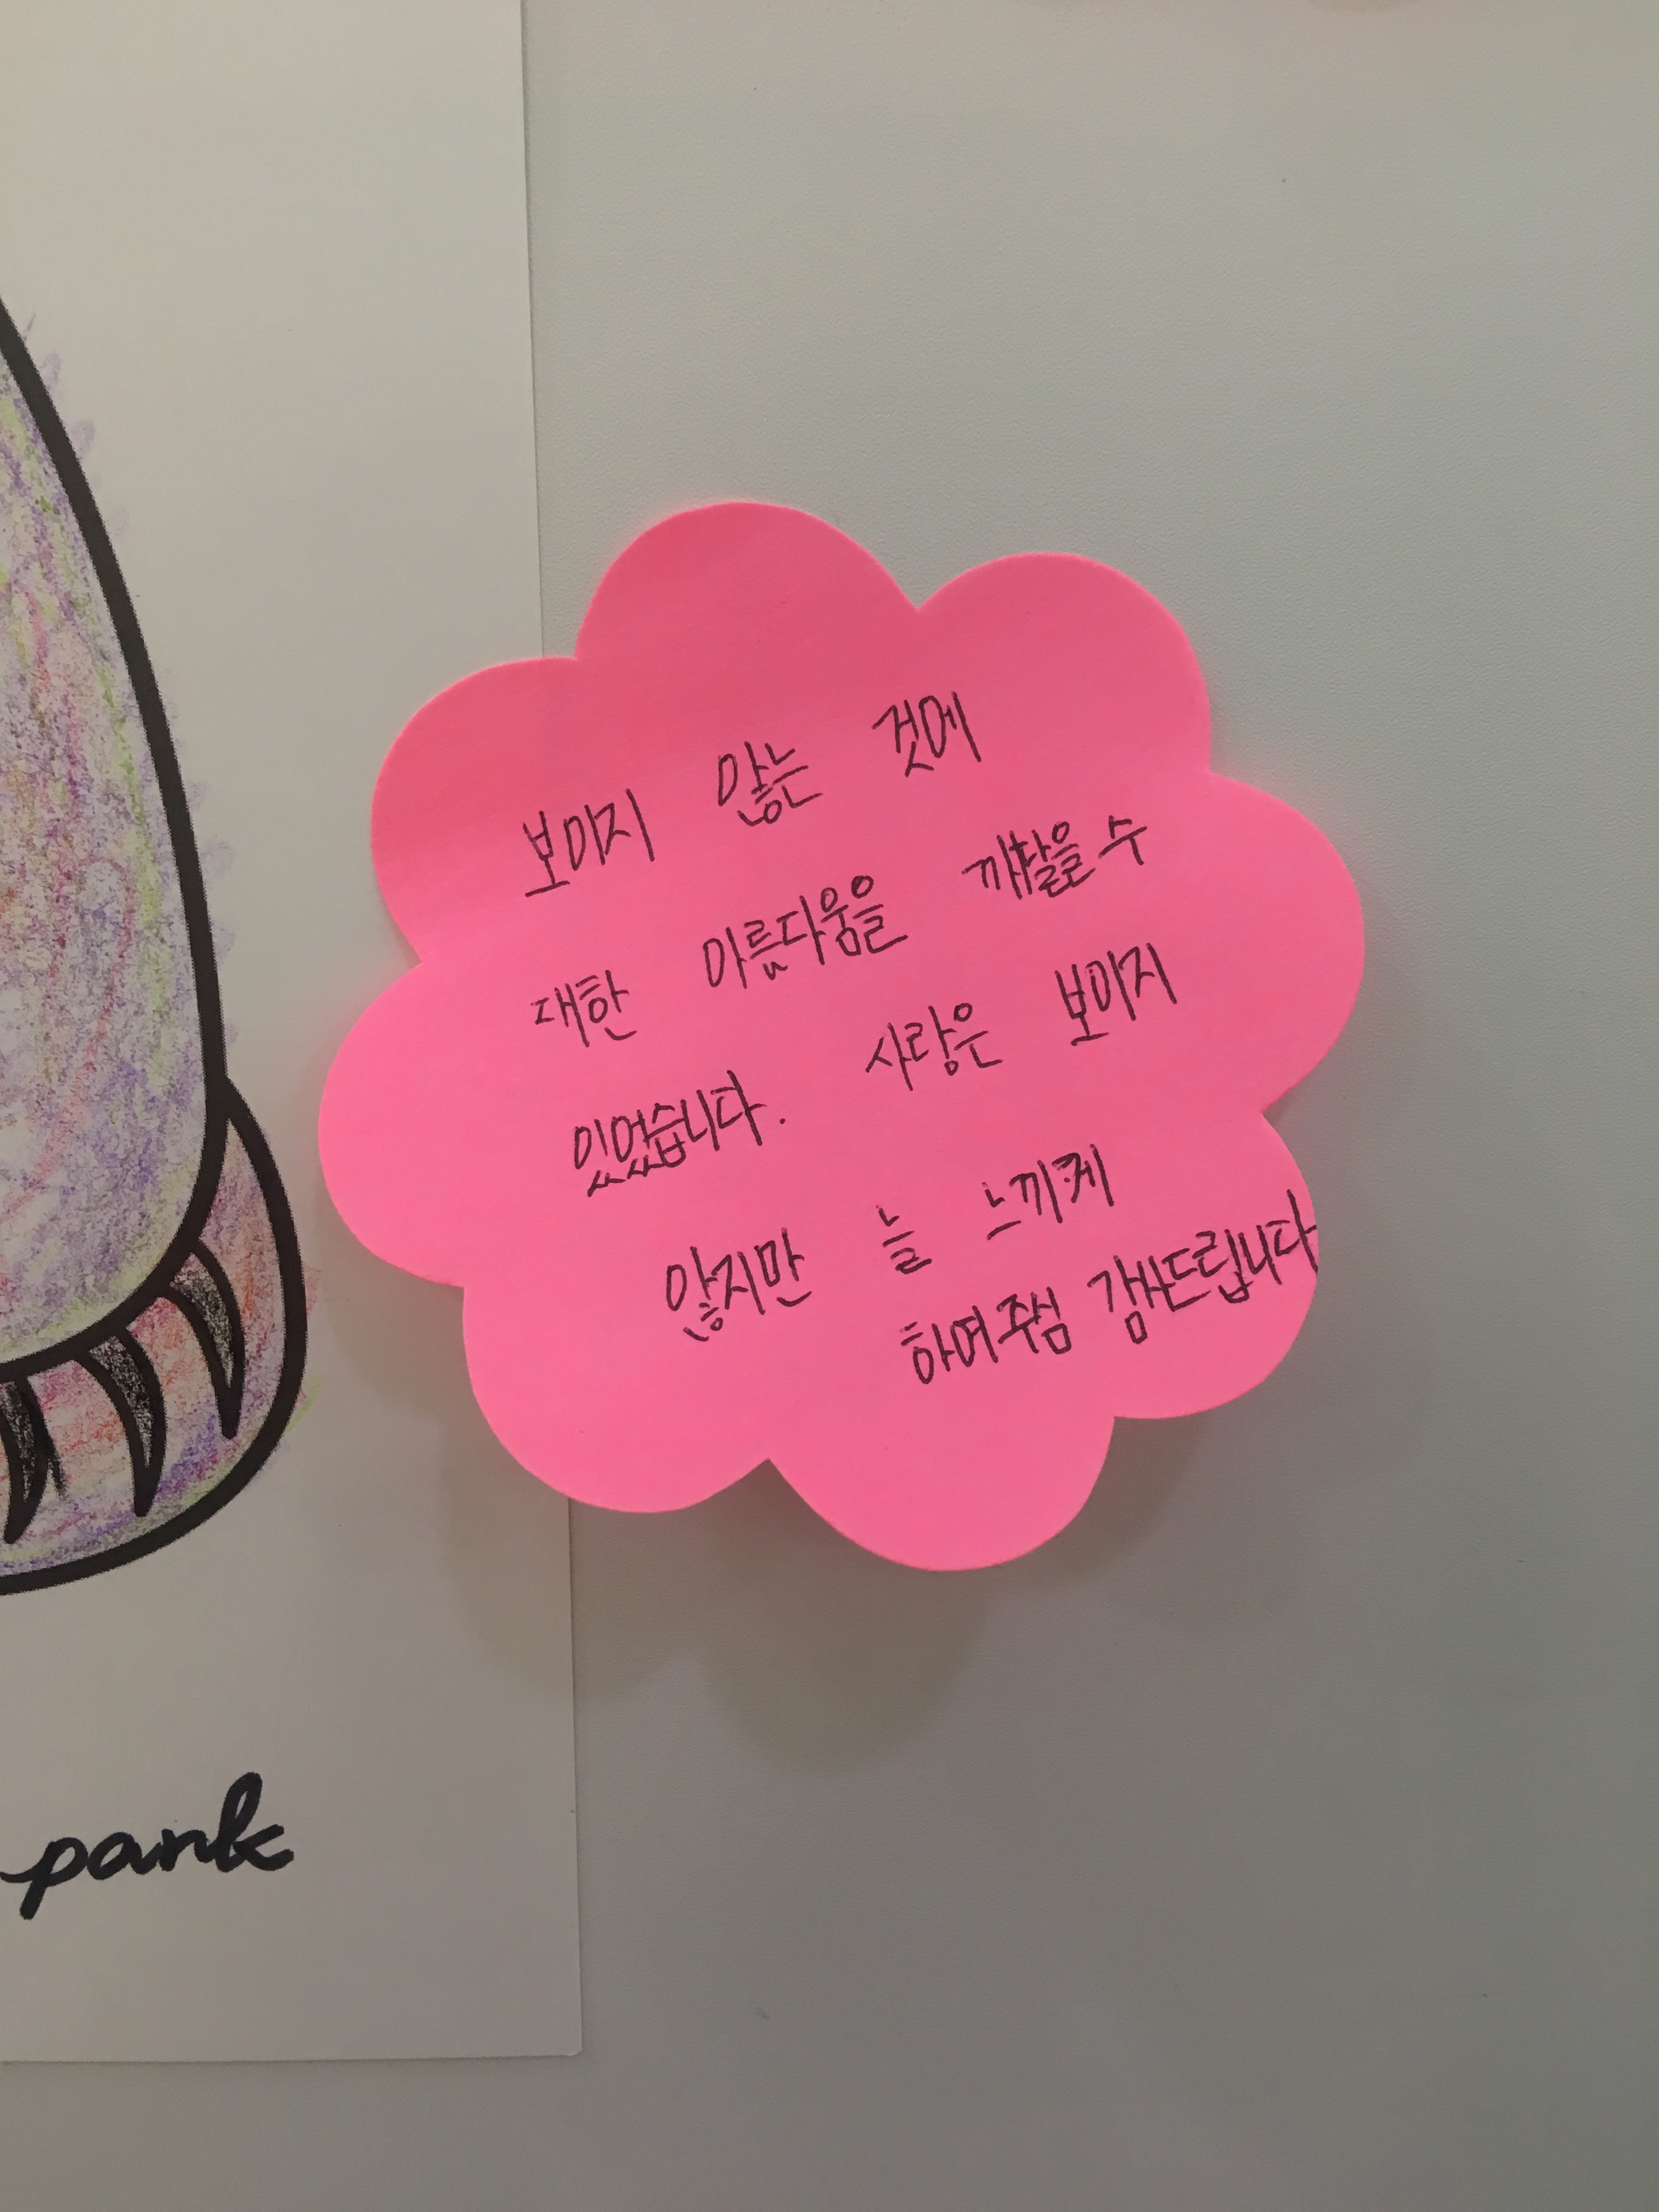 보이지 않는 것에
대한 아름다움을 깨닫을 수
있었습니다. 사랑은 보이지
않지만 늘 느끼게
하여주심 감사드립니다
pank